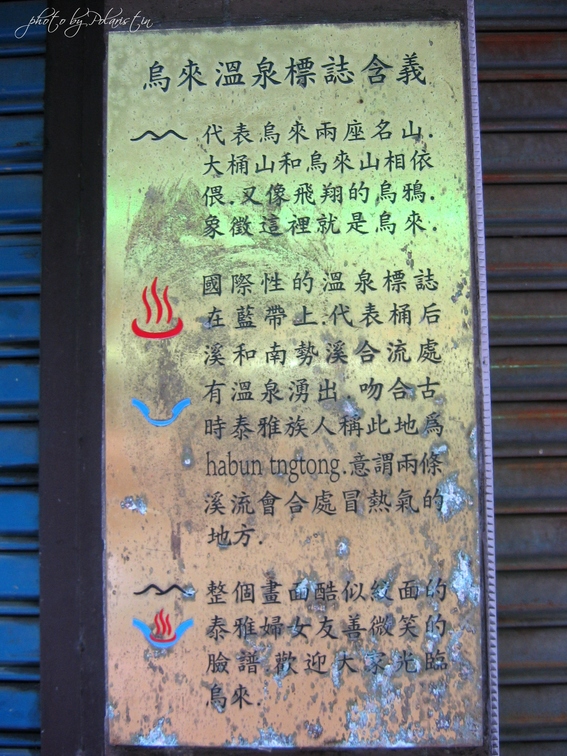 photo by Polaristin
烏來溫泉標誌含義
代表烏來兩座名山.
大桶山和烏來山相依
偎.又像飛翔的烏鴉.
象徵這裡就是烏來.
國際性的溫泉標誌
在藍帶上.代表桶后
溪和南勢溪合流處
有溫泉湧出.吻合古
時泰雅族人稱此地為
habun tngtong.意謂兩條
溪流會合處冒熱氣的
地方.
整個畫面酷似紋面的
泰雅婦女友善微笑的
臉譜.歡迎大家光臨
烏來.